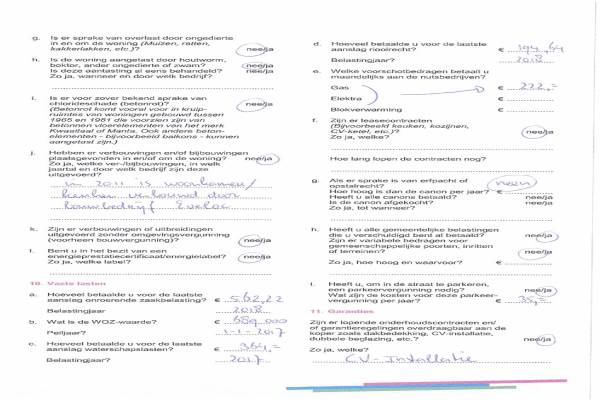 g. Is er sprake van overlast door ongedierte
in en om de woning (Muizen, ratten,
kakkerlakken, etc.)? nee/ja
h. Is de woning aangetast door houtworm,
boktor, ander ongedierte of zwam? nee/ja
Is deze aantasting al eens behandeld? nee/ja
Zo ja, wanneer en door welk bedrijf?
i. Is er voor zover bekend sprake van
chlorideschade (betonrot)? nee/ja
(Betonrot komt vooral voor in kruip-
ruimtes van woningen gebouwd tussen
1965 en 1981 die voorzien zijn van
betonnen vloerelementen van het merk
Kwaaitaal of Manta. Ook andere beton-
elementen - bijvoorbeeld balkons - kunnen
aangetast zijn.)
j. Hebben er verbouwingen en/of bijbouwingen
plaatsgevonden in en/of om de woning? nee/ja
Zo ja, welke ver-/bijbouwingen, in welk
jaar/bij en door welk bedrijf zijn deze
uitgevoerd?
in 2011 is woonkamer/
keuken verbouwd door
bouwbedrijf
k. Zijn er verbouwingen of uitbreidingen
uitgevoerd zonder omgevingsvergunning
(voorheen bouwvergunning)? nee/ja
l. Bent u in het bezit van een
energieprestatiecertificaat/energielabel? nee/ja
Zo ja, welke label?
10. Vaste lasten
a. Hoeveel betaalde u voor de laatste
aanslag onroerende zaakbelasting? € 562,22
Belastingjaar 2018
b. Wat is de WOZ-waarde? € 689.000
Peiljaar? 1-1-2017
c. Hoeveel betaalde u voor de laatste
aanslag waterschapslasten? € 364,=
Belastingjaar? 2017
d. Hoeveel betaalde u voor de laatste
aanslag rioolrecht? € 194,64
Belastingjaar? 2018
e. Welke voorschotbedragen betaalt u
maandelijks aan de nutsbedrijven?
Gas € 222,=
Elektra €
Blokverwarming €
f. Zijn er leasecontracten
(Bijvoorbeeld keuken, kozijnen,
CV-ketel, etc.)? nee/ja
Zo ja, welke?
Hoe lang lopen de contracten nog?
g. Als er sprake is van erfpacht of
opstalrecht? neen
Hoe hoog is dan de canon per jaar? €
Heeft u alle canons betaald? nee/ja
Is de canon afgekocht? nee/ja
Zo ja, tot wanneer?
h. Heeft u alle gemeentelijke belastingen
die u verschuldigd bent al betaald? nee/ja
Zijn er variabele bedragen voor
gemeenschappelijke poorten, inritten
of terreinen? nee/ja
Zo ja, hoe hoog en waarvoor? €
i. Heeft u, om in de straat te parkeren,
een parkeervergunning nodig? nee/ja
Wat zijn de kosten voor deze parkeer-
vergunning per jaar? € 35,=
11. Garanties
Zijn er lopende onderhoudscontracten en/
of garantieregelingen overdraagbaar aan de
koper zoals dakbedekking, CV-installatie,
dubbele beglazing, etc.? nee/ja
Zo ja, welke?
CV-Installatie